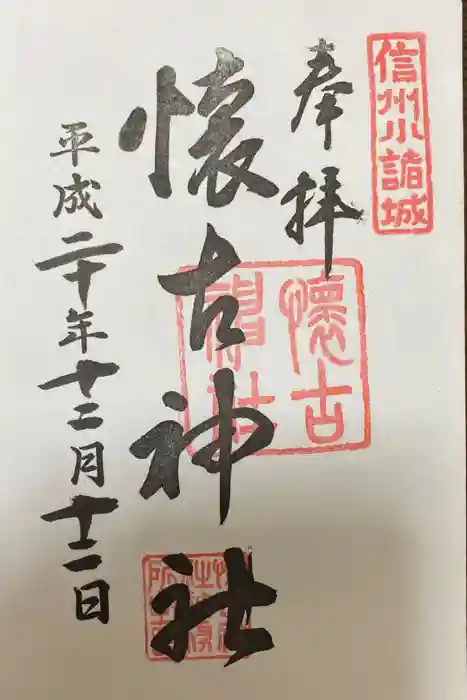 信州小諸城
奉拝
懐古神社
懐古神社
平成二十年十二月十二日